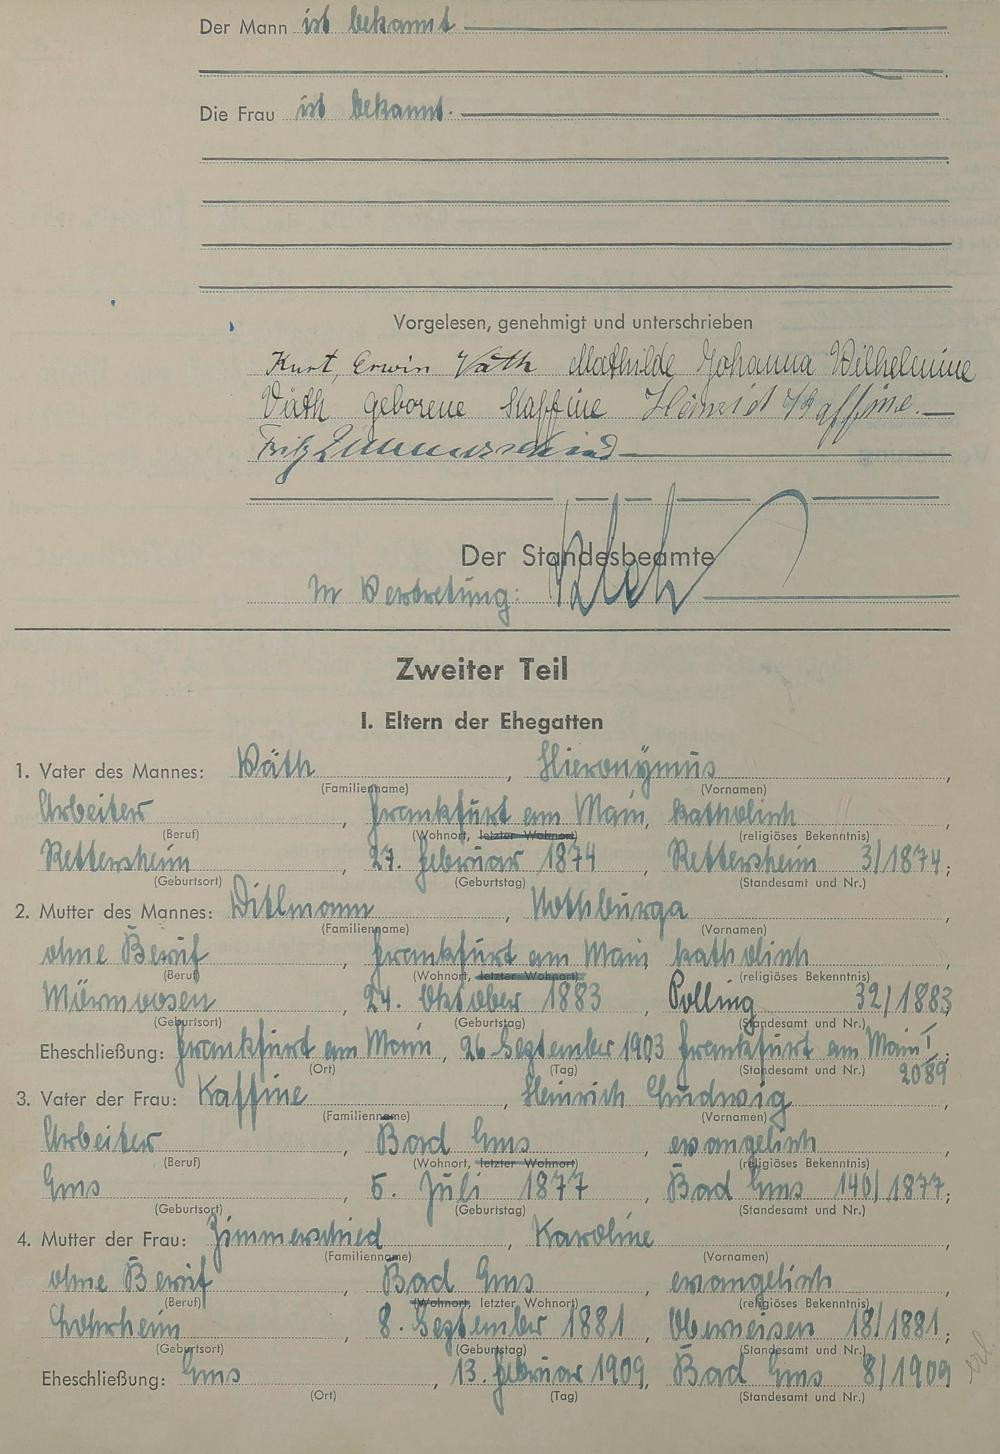 Der Mann ist bekannt
Die Frau ist bekannt.
Vorgelesen, genehmigt und unterschrieben
Kurt, Erwin Väth Mathilde Johanna Wilhelmine
Väth geborene Kaffine Heinrich Kaffine.
Fritz Zimmerschied
Der Standesbeamte
In Vertretung:
Zweiter Teil
I. Eltern der Ehegatten
1. Vater des Mannes: Väth, Hieronymus,
(Familienname) (Vornamen)
Arbeiter, Frankfurt am Main, katholisch,
(Beruf) (Wohnort, letzter Wohnort) (religiöses Bekenntnis)
Rettersheim, 27. Februar 1874, Rettersheim 3/1874;
(Geburtsort) (Geburtstag) (Standesamt und Nr.)
2. Mutter des Mannes: Ditlmann, Nothburga,
(Familienname) (Vornamen)
ohne Beruf, Frankfurt am Main, katholisch,
(Beruf) (Wohnort, letzter Wohnort) (religiöses Bekenntnis)
Mörmoosen, 24. Oktober 1883, Polling 32/1883,
(Geburtsort) (Geburtstag) (Standesamt und Nr.)
Eheschließung: Frankfurt am Main, 26. September 1903 Frankfurt am Main I;
(Ort) (Tag) (Standesamt und Nr.) 2089
3. Vater der Frau: Kaffine, Heinrich Ludwig,
(Familienname) (Vornamen)
Arbeiter, Bad Ems, evangelisch,
(Beruf) (Wohnort, letzter Wohnort) (religiöses Bekenntnis)
Ems, 5. Juli 1877, Bad Ems 140/1877;
(Geburtsort) (Geburtstag) (Standesamt und Nr.)
4. Mutter der Frau: Zimmerschied, Karoline,
(Familienname) (Vornamen)
ohne Beruf, Bad Ems, evangelisch,
(Beruf) (Wohnort, letzter Wohnort) (religiöses Bekenntnis)
Lohrheim, 8. September 1881, Oberneisen 18/1881;
(Geburtsort) (Geburtstag) (Standesamt und Nr.)
Eheschließung: Ems, 13. Februar 1909, Bad Ems 8/1909
(Ort) (Tag) (Standesamt und Nr.)